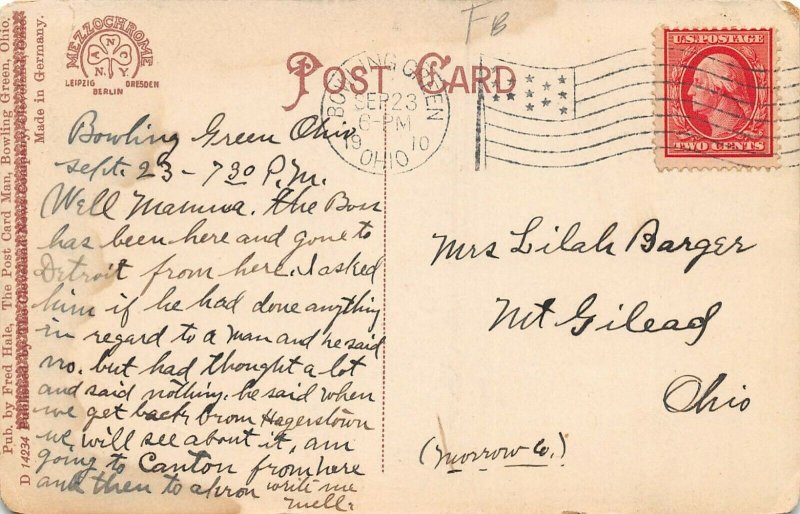 Pub. by Fred Hale, The Post Card Man, Bowling Green, Ohio.
D 14234
Made in Germany.
MEZZOCHROME
A N C
N.Y.
LEIPZIG DRESDEN
BERLIN
POST CARD
FB
BOWLING GREEN
SEP 23
6-PM
1910
OHIO
U.S. POSTAGE
TWO CENTS
Bowling Green Ohio
Sept. 23 - 7 30 P.M.
Well Mamma. The Boss
has been here and gone to
Detroit from here. I asked
him if he had done anything
in regard to a man and he said
no. but had thought a lot
and said nothing. he said when
we get back from Hagerstown
we will see about it, am
going to Canton from here
and then to akron write me
Nell.
Mrs Lilah Barger
Mt Gilead
Ohio
(Morrow Co.)